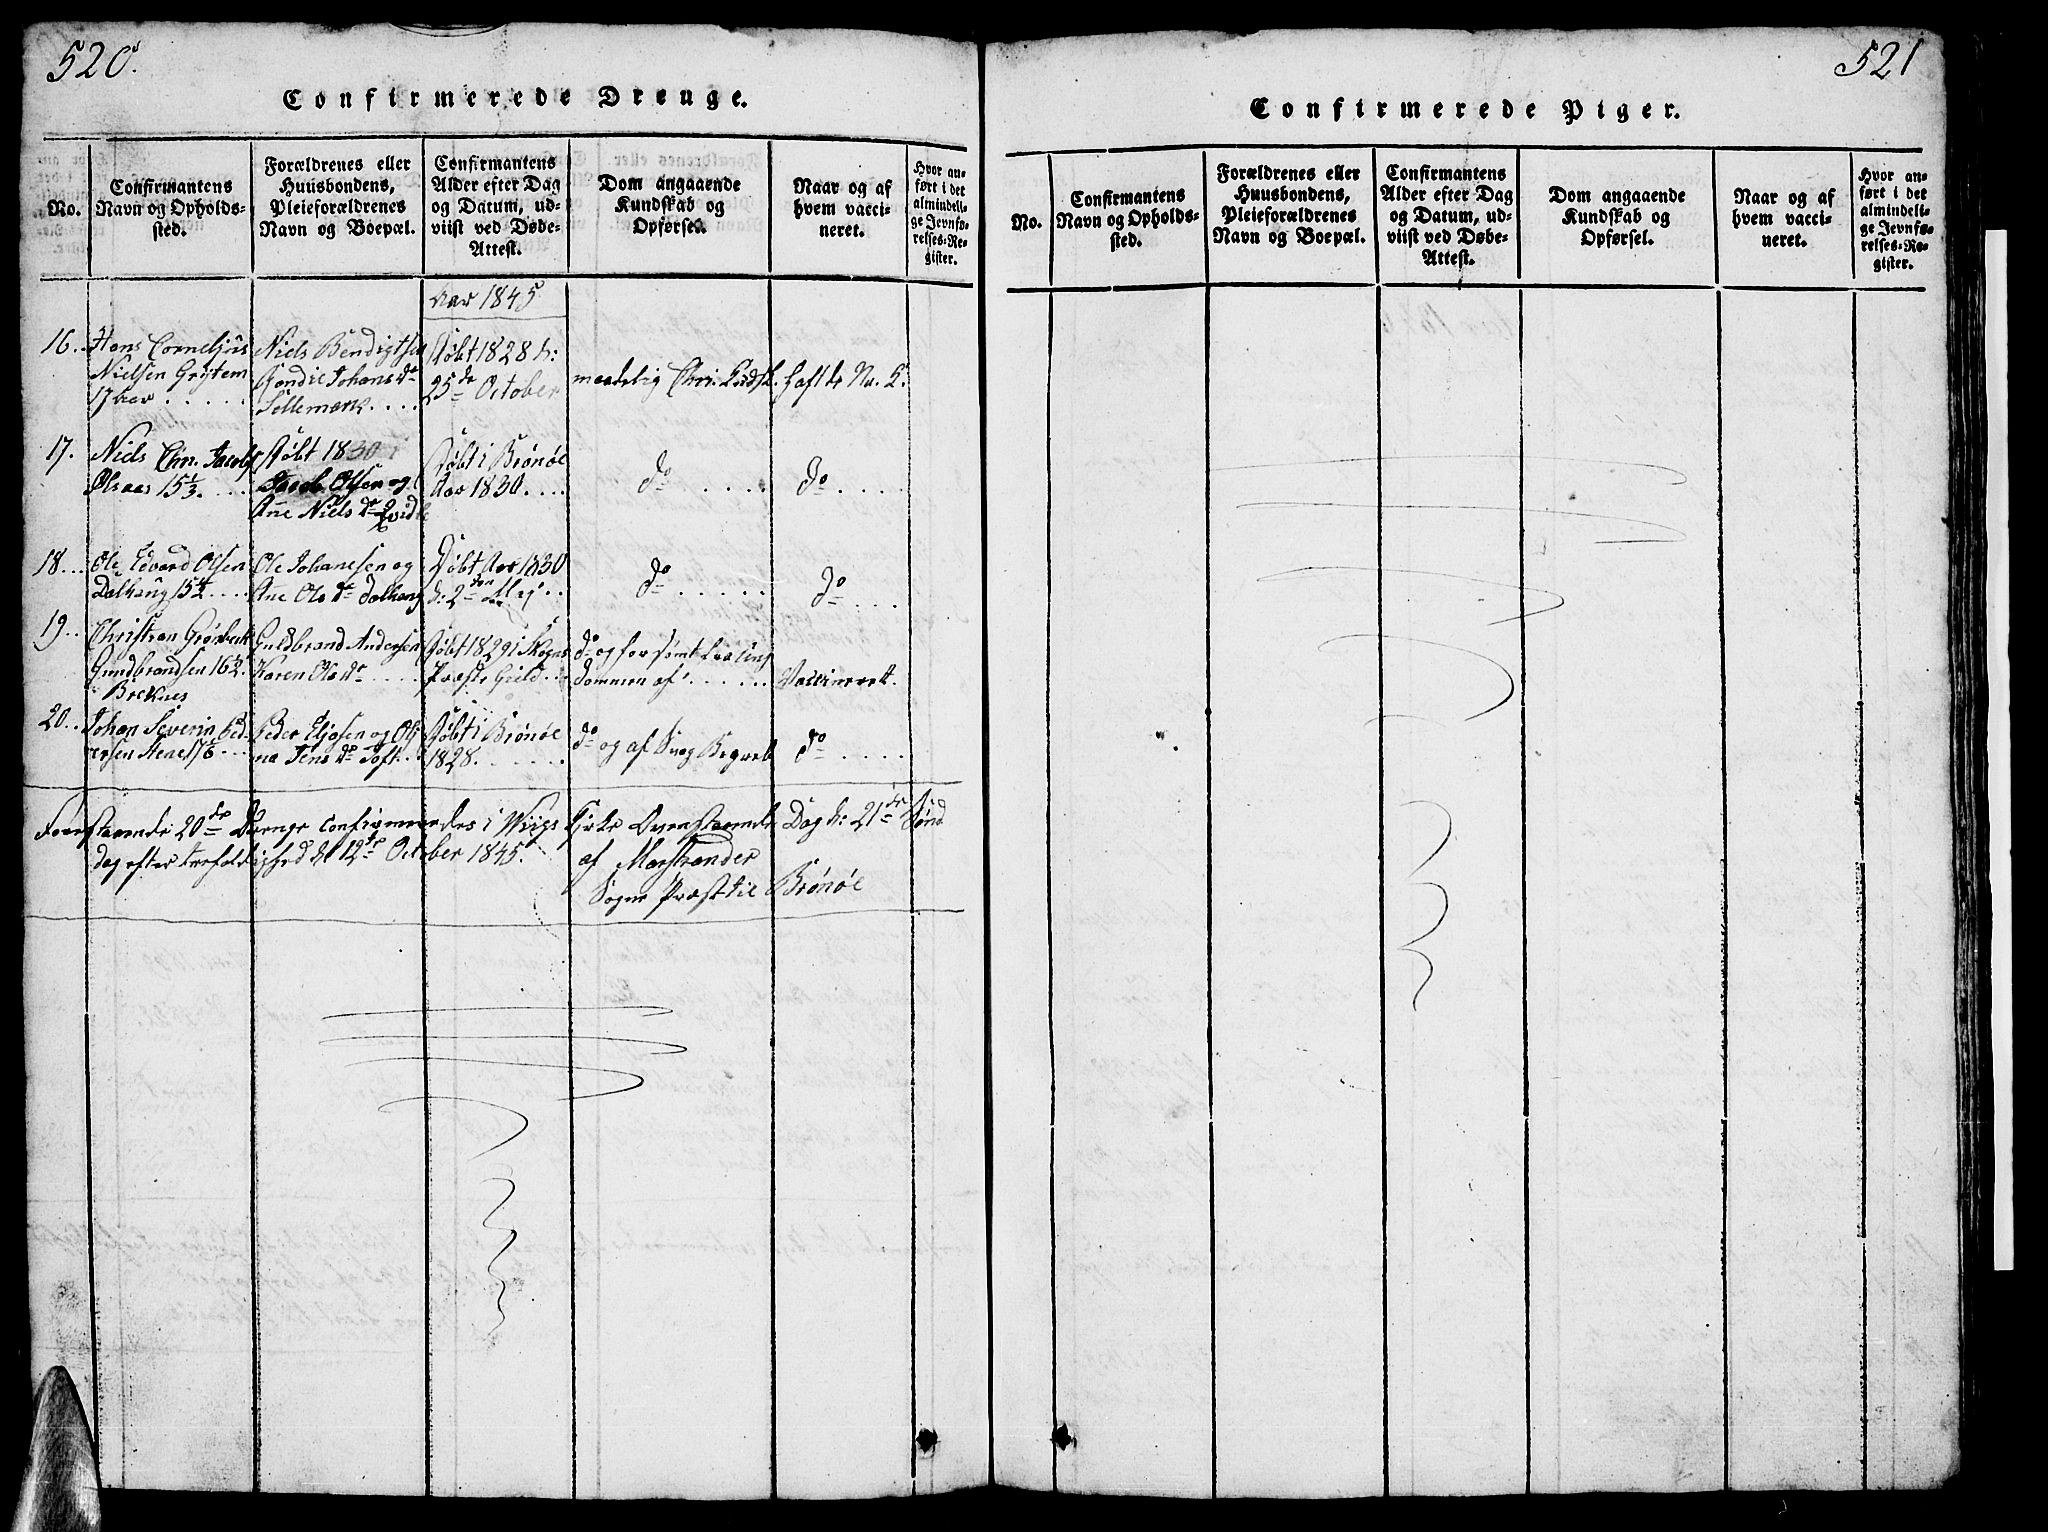 520.
Confirmerede Drenge.
No.
Confirmantens
Navn og Opholds-
sted.
Forældrenes eller
Huusbondens,
Pleieforældrenes
Navn og Boepæl.
Confirmantens
Alder efter Dag
og Datum, ud-
viist ved Døbe-
Attest.
Dom angaaende
Kundskab og
Opførsel.
Naar og af
hvem vacci-
neret.
Hvor an-
ført i det
almindeli-
ge Jevnfø-
relses-Re-
gister.
Aar 1845
16..
Hans Corneljus
Nielsen Grytem
17 aar . . . . .
Niels Bendigtsen
Johans dr
. . . .
Døbt 1828 d:
25de October
maadelig Chri. Kudsk.
haft de Na. K.
17.
Niels Chr. Jacobs
Ølsaas 15 1/3. . . .
Døbt 1830 i
Jacob Olsen og
Ane Niels dr
Døbt i Brönöe
Aar 1830. . . .
do . . . . .
do . . . .
18...
Ole Edvard Olsen
Dalhaug 15 1/2 . . .
Ole Johanesen og
Ane Ols dr Dalhaug
Døbt Aar 1830
d: 2den Maj . .
do . . . . . .
do . . .
19..
Christian Grönbeck
Gundbrandsen 16 1/2.
Breknes
Guldbrand Andersen
Karen Ols dr . . . .
Døbt 1829 i
Præste Gield . . .
do og forsømt fra ung
dommen af . . . . . .
Vaccineret.
20...
Johan Severin Ped-
ersen Stene 17 1/6 . . .
Peder Eljasen og Oli
na Jens dr Toft . .
Døbt i Brönöe
1828. . . . . . .
do og af Svag Begreb
do . . . .
Foerstaaende 20de Drenge confirmeerdes i Wiigs Kirke Ovenstaaende Dag d: 21de Sönd
dag efter trefoldighed d. 12te October 1845. af Marstrander
Sogne Præst til Brönöe
521
Confirmerede Piger.
No.
Confirmantens
Navn og Opholds-
sted.
Forældrenes eller
Huusbondens,
Pleieforældrenes
Navn og Boepæl.
Confirmantens
Alder efter Dag
og Datum, ud-
viist ved Døbe-
Attest.
Dom angaaende
Kundskab og
Opførsel.
Naar og af
hvem vacci-
neret.
Hvor an-
ført i det
almindeli-
ge Jevnfø-
relses-Re-
gister.